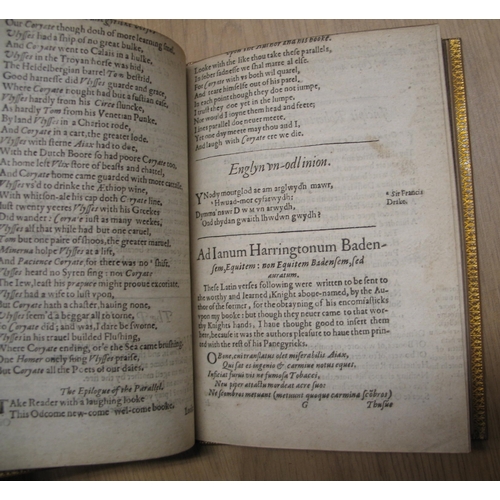 But Coryate though doth of more learning
Vlysses had a ship of no great bulke,
And Coryate went to Calais in a hulke,
Vlysses in the Troyan horse was hid,
The Heidelbergian barrel Tom bestrid,
Good harness did Vlysses guarde and grace,
Where Coryate rought had but a fustian case,
Vlysses hardly from his Circe sluncke,
As hardly Tom from his Venetian Punke.
By land Vlysses in a Chariot rode,
And Coryate in a cart, the greater lode.
Vlysses with sterne Aiax had to doe,
With the Dutch Boore so had poore Coryate too,
At home left Vlysses store of beasts and chattel,
And Coryate home came guarded with more cattle,
Vlysses vs'd to drinke the Æthiop wine,
With whitson-ale his cap doth Coryate
Iust twenty yeeres Vlysses with his Greekes
Did wander: Coryate just as many weekes,
Vlysses all that while had but one caruel,
Tom but one paire of shooes, the greater maruel.
Minerua holpe Vlysses at a lift,
And Patience Coryate for there was no shift.
Vlysses heard no Syren sing: nor Coryate
The Iew, least his prepuce might prooue excoriate
Vlysses had a wife to lust vpon,
But Coryate hath a chaster, hauing none,
Vlysses seem'd a beggar all to torne,
So did Coryate; and was, I dare be sworne,
Vlysses in his trauel builded Flushing,
Where Coryate ending, or'e the Sea came brushing.
One Homer onely sung Vlysses praise,
but Coryate all the Poets of our daies.
The Epilogue of the Parallell.
TAke Reader with a laughing looke
This Odcome new-come well-come booke.
Vpon the Author and his booke.
Looke with the like thou take these parallels,
In sober sadnesse we shall marre al else.
For Coryate with vs both wil quarel,
And teare himselfe out of his parel,
In each point though they doe not iumpe,
I trust they doe yet in the lumpe.
Nor would I ioyne them head and feete;
Lines parallel doe neuer meete.
Yet one day meere may thou and I,
And laugh with Coryate ere we die.
Englyn vn-odl inion.
YNady mourglod ae am arglwydh mawr,
Hwuad-mor cyfarwydh:
Dymma'nawr Dwvn arwydh,
Oud chydan gwaith lhwdwn gwydh?
* Sir Francis
Drake.
Ad Ianum Harringtonum Baden-
sem, Equitem: non Equitem Badensem, sed
auratum.
These Latin verses following were written to be sent to
the worthy and learned Knight aboue-named, by the Au-
thor of the former, for the obtayning of his encomiasticks
vpon my booke: but though they neuer came to that wor-
thy Knights hands, I thought good to insert them
here, because it was the authors pleasure to haue them prin-
ted with his Panegyricks.
O Bone, extransatus olet miserabilis Aiax,
Qui sis es ingenio & carmine notus eques.
Inscius furui vis ne fumosa Tobacci,
Neu piper assatum ardeat acre suo:
Ne scombros metuant (metuunt quoque carmina scōbros)
G
Thusue